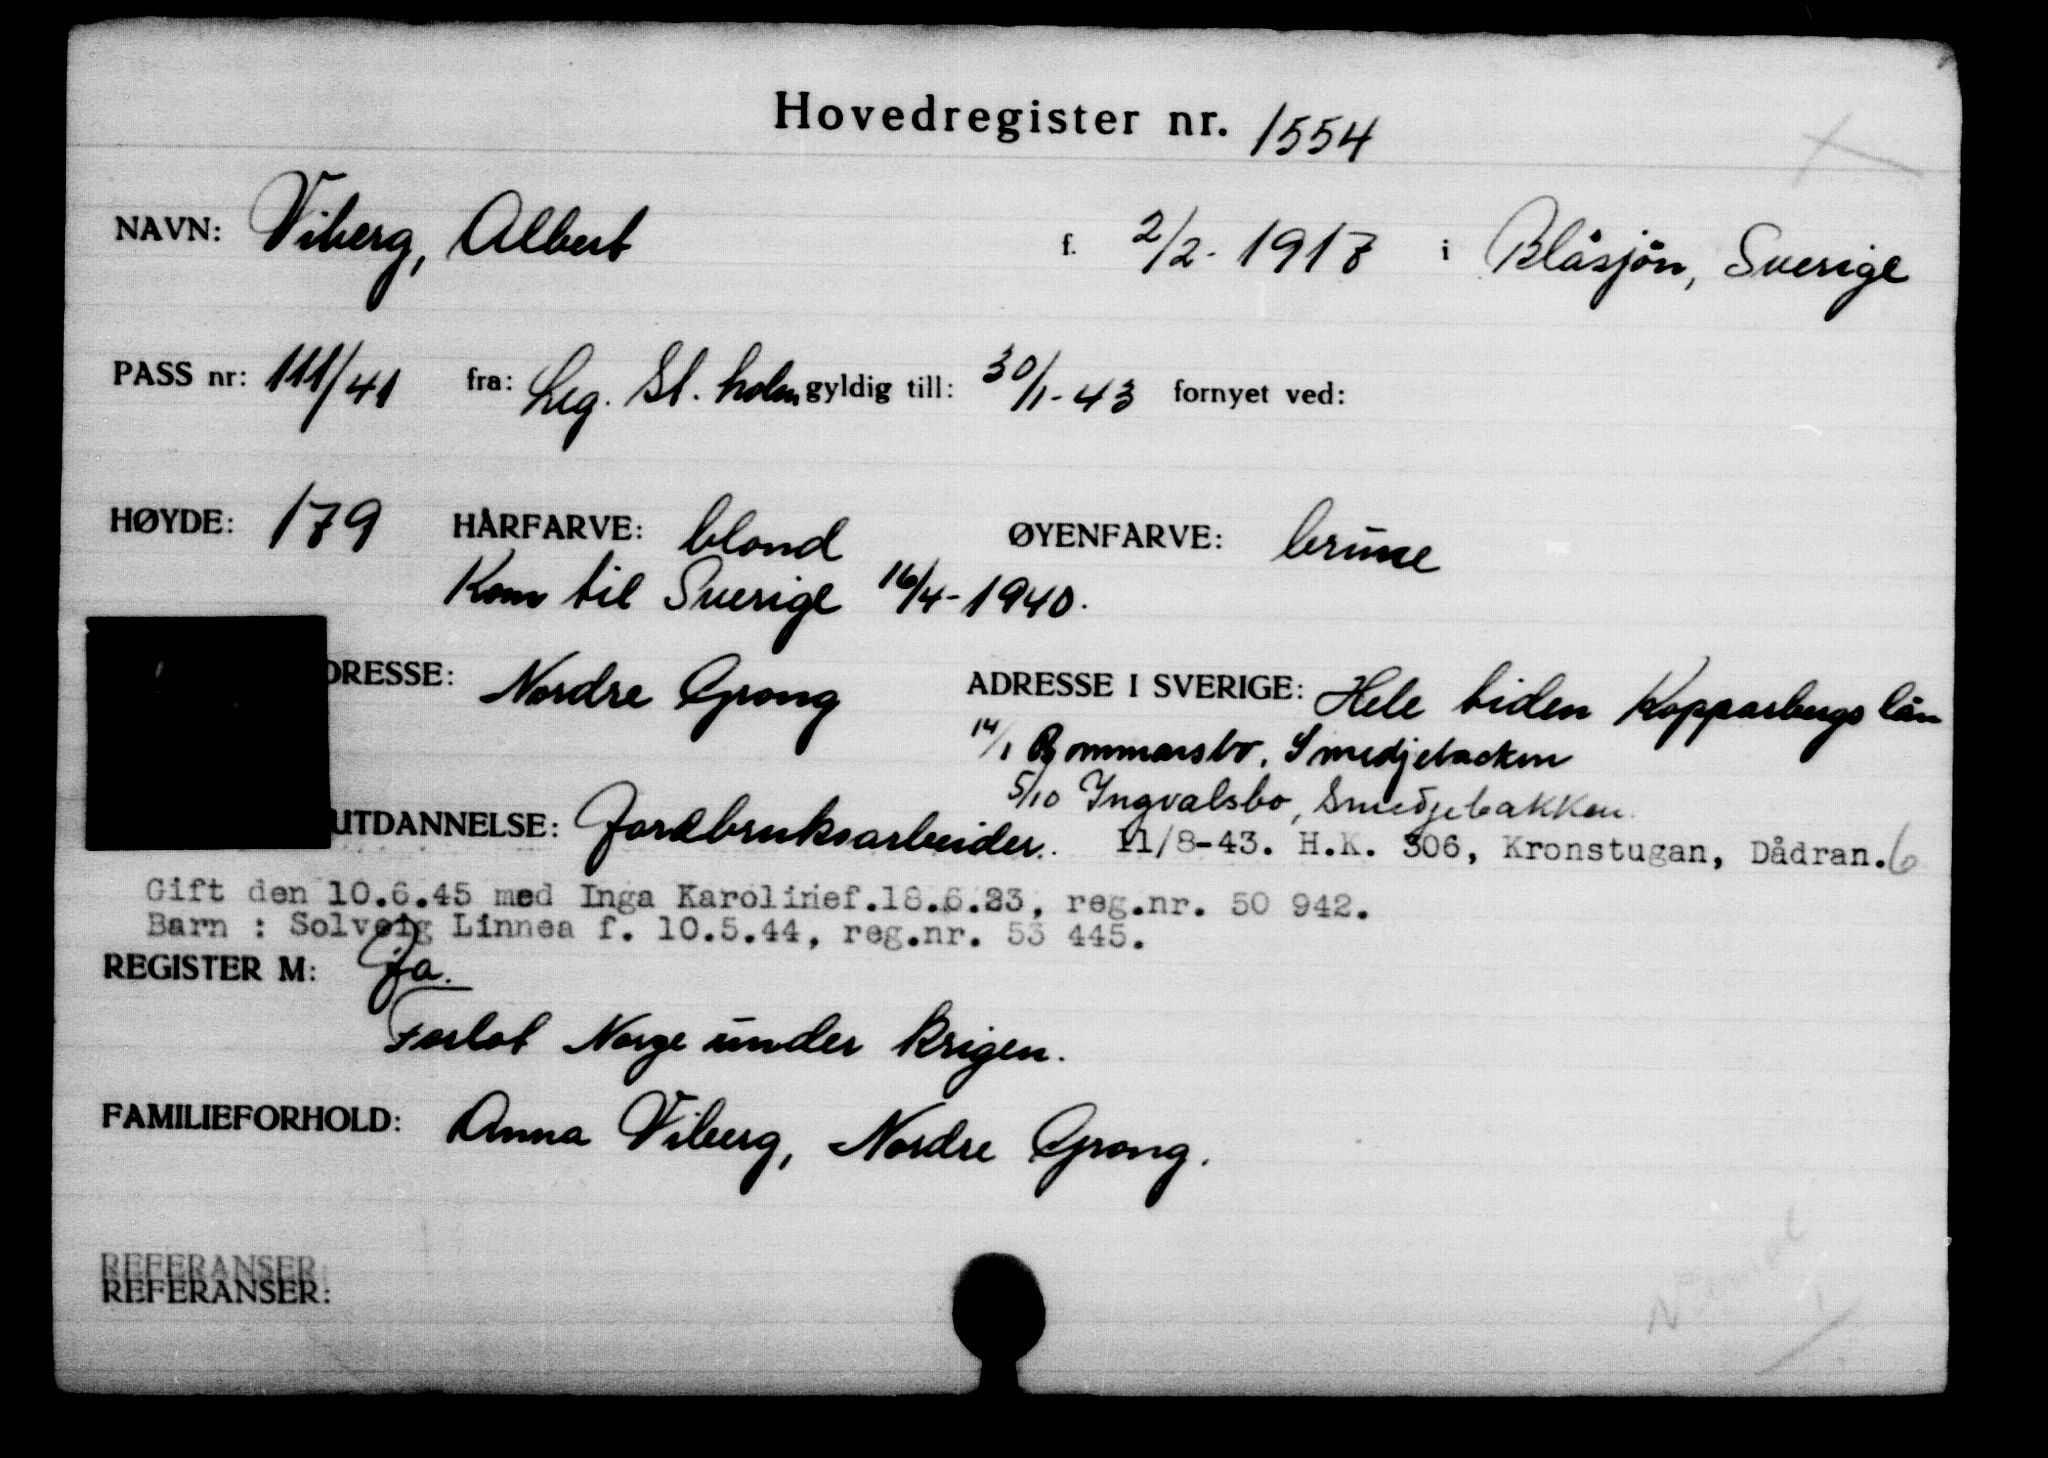 Hovedregister nr. 1554
NAVN: Viberg, Albert f. 2/2-1917 i Blåsjön, Sverige
PASS nr: 111/41 fra: Leg. St. holm gyldig till: 30/1-43 fornyet ved:
HØYDE: 179 HÅRFARVE: blond ØYENFARVE: brune
Kom til Sverige 16/4-1940.
DRESSE: Nordre Grong ADRESSE I SVERIGE: Hele tiden Kopparbergs län
14/1 Bommarsbo, Smedjebacken
5/10 Ingvalsbo, Smedjebakken.
UTDANNELSE: Jordbruksarbeider. 11/8-43. H.K. 306, Kronstugan, Dådran. 6
Gift den 10.6.45 med Inga Karolinef.18.6.23, reg.nr. 50 942.
Barn : Solveig Linnea f. 10.5.44, reg.nr. 53 445.
REGISTER M: Ja.
Forlot Norge under krigen.
FAMILIEFORHOLD: Anna Viberg, Nordre Grong.
REFERANSER
REFERANSER: